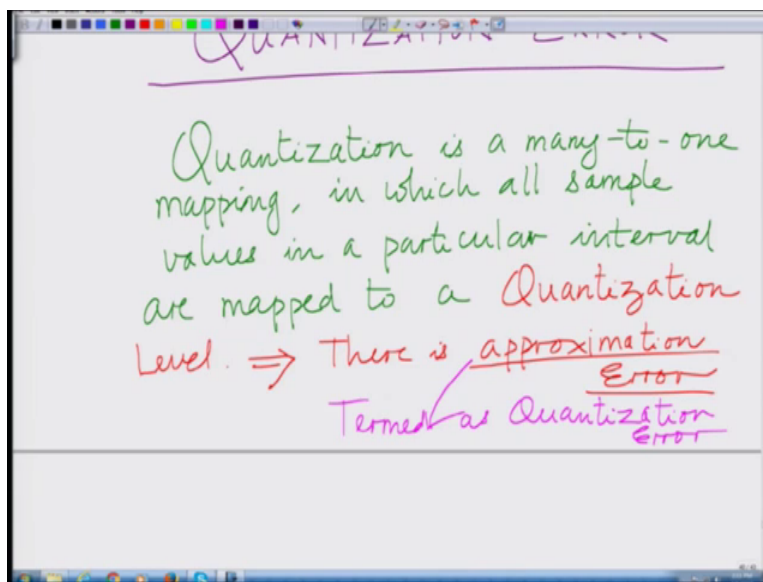 QUANTIZATION ERROR
Quantization is a many-to-one
mapping, in which all sample
values in a particular interval
are mapped to a Quantization
Level. ⇒ There is approximation
Error
Termed as Quantization
Error